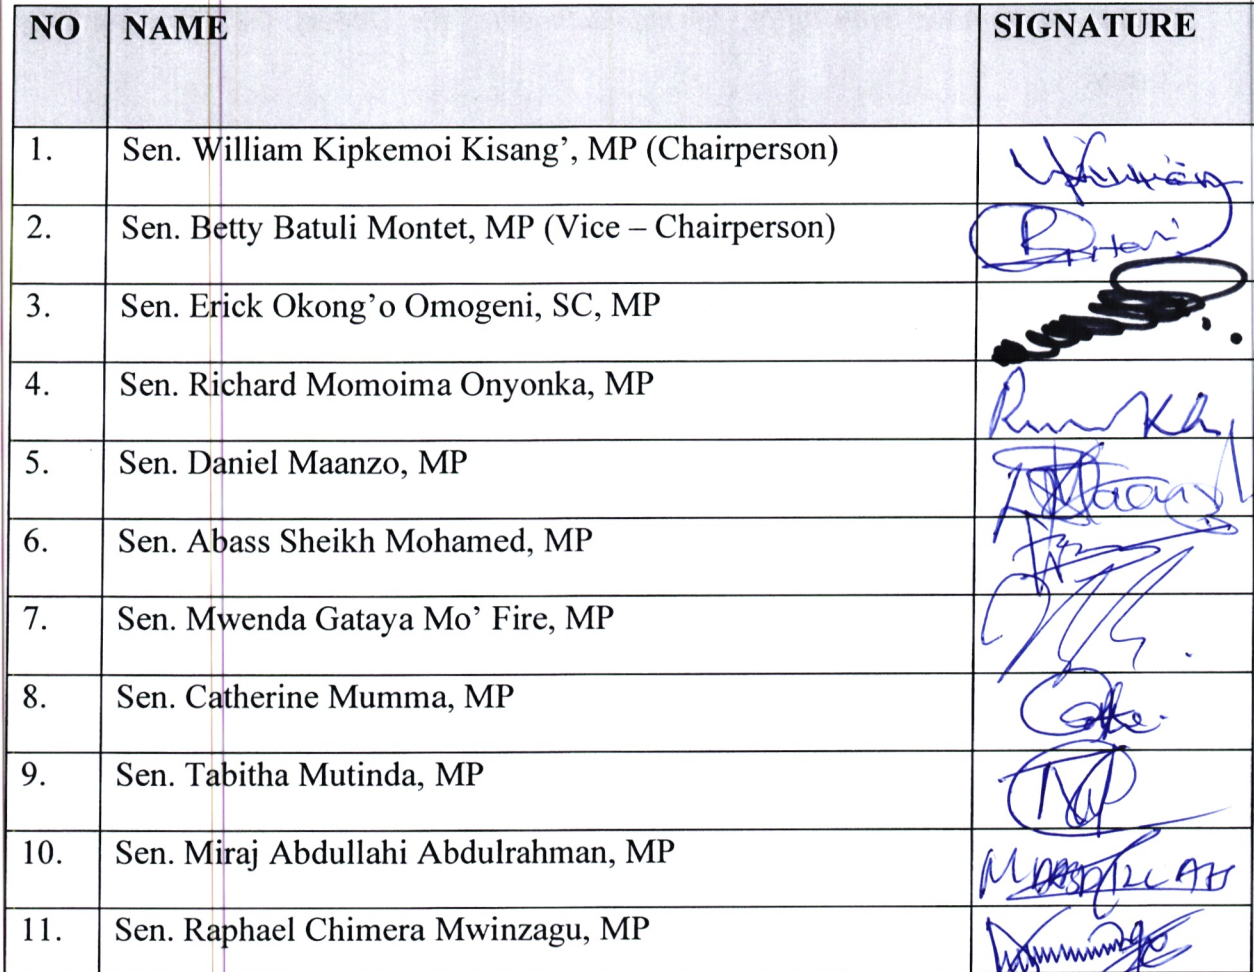 NO NAME SIGNATURE
1. Sen. William Kipkemoi Kisang’, MP (Chairperson)
2. Sen. Betty Batuli Montet, MP (Vice – Chairperson)
3. Sen. Erick Okong’o Omogeni, SC, MP
4. Sen. Richard Momoima Onyonka, MP
5. Sen. Daniel Maanzo, MP
6. Sen. Abass Sheikh Mohamed, MP
7. Sen. Mwenda Gataya Mo’ Fire, MP
8. Sen. Catherine Mumma, MP
9. Sen. Tabitha Mutinda, MP
10. Sen. Miraj Abdullahi Abdulrahman, MP
11. Sen. Raphael Chimera Mwinzagu, MP